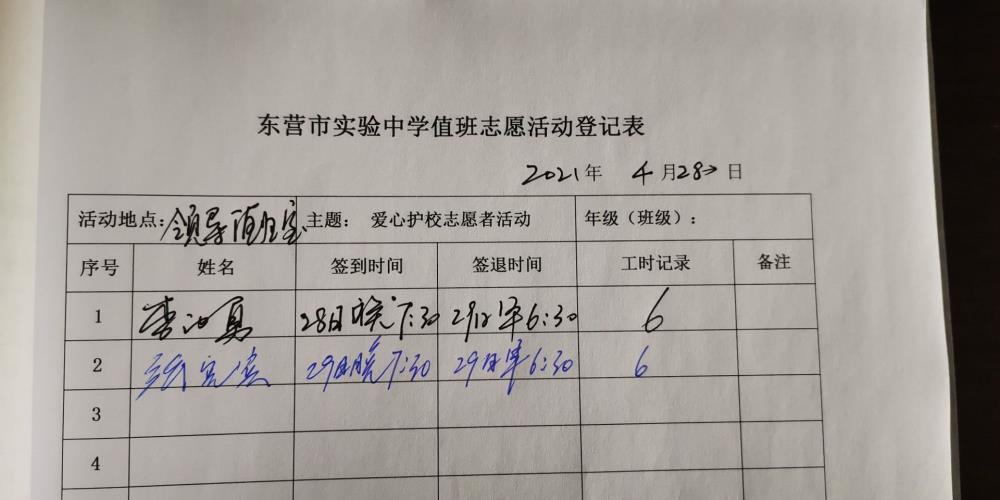 东营市实验中学值班志愿活动登记表
2021年 4月28日
活动地点:领导值班室 主题: 爱心护校志愿者活动 年级(班级):
序号 姓名 签到时间 签退时间 工时记录 备注
1 李 勇 28日晚7:30 29日早6:30 6
2 张宾宾 29日晚7:30 29日早6:30 6
3
4